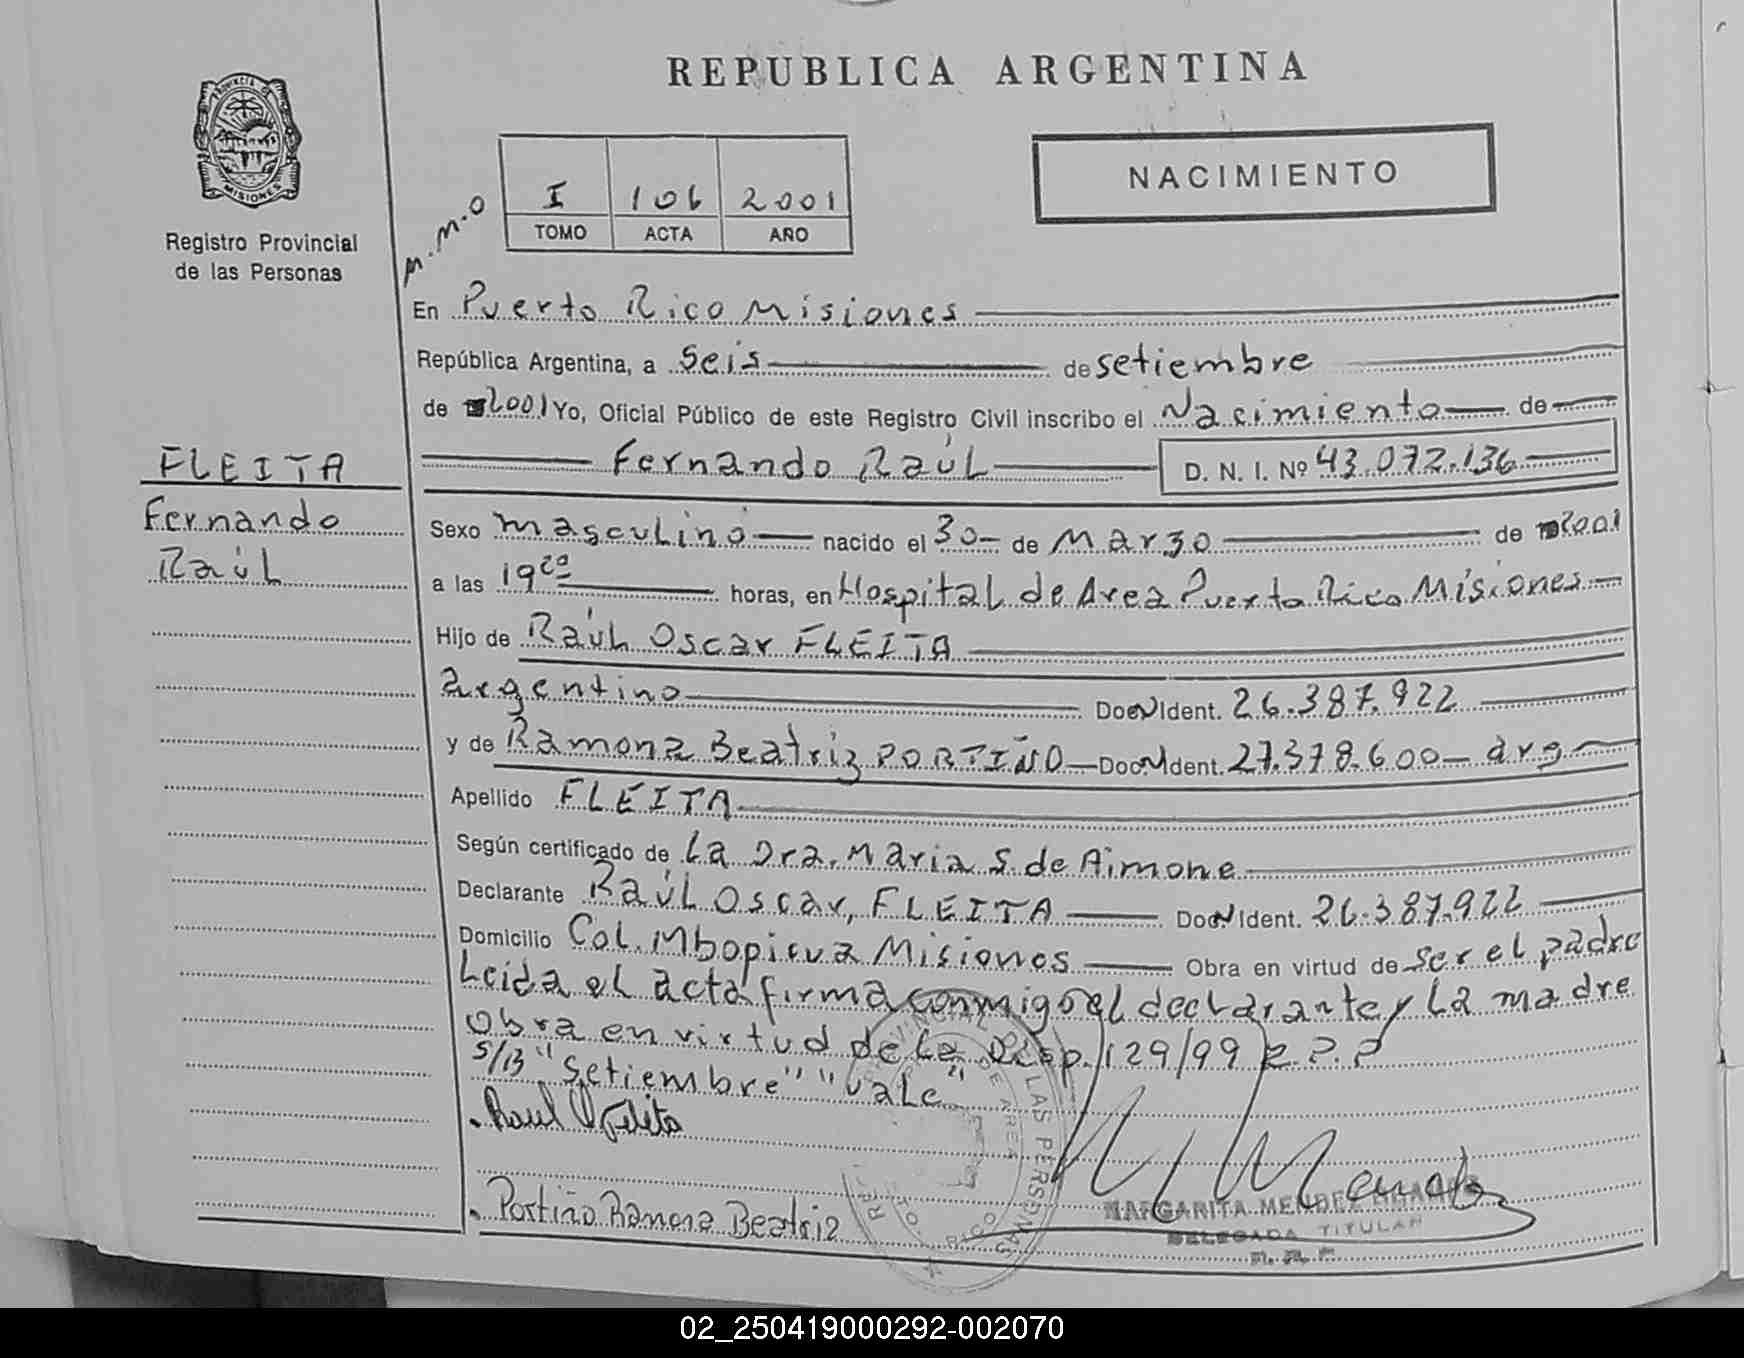 REPUBLICA ARGENTINA
PROVINCIA DE MISIONES
Registro Provincial
de las Personas
M.M.O
I 106 2001
TOMO ACTA AÑO
NACIMIENTO
En Puerto Rico Misiones
República Argentina, a Seis de setiembre
de 2001 Yo, Oficial Público de este Registro Civil inscribo el Nacimiento de
Fernando Raúl D. N. I. Nº 43.072.136
FLEITA
Fernando
Raúl
Sexo masculino nacido el 30 de Marzo de 2001
a las 19 20 horas, en Hospital de Area Puerto Rico Misiones
Hijo de Raúl Oscar FLEITA
argentino Doc. Ident. 26.387.922
y de Ramona Beatriz PORTIÑO Doc. Ident. 27.378.600 arg
Apellido FLEITA
Según certificado de La Dra. Maria S. de Aimone
Declarante Raúl Oscar, FLEITA Doc. Ident. 26.387.922
Domicilio Col. Mbopicua Misiones Obra en virtud de ser el padre
Leida el acta firma conmigo el declarante y La madre
Obra en virtud de la Disp. 129/99 R.P.P
S/B "Setiembre" "Vale"
Raul O Fleita
Portiño Ramona Beatriz
MARGARITA MENDEZ
DELEGADA TITULAR
02_250419000292-002070